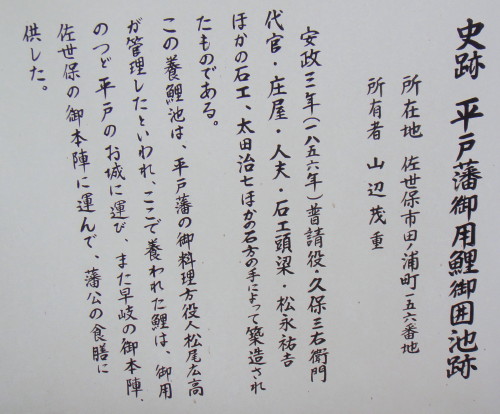 史跡 平戸藩御用鯉御囲池跡
所在地 佐世保市田ノ浦町一五六番地
所有者 山辺茂重
安政三年(一八五六年)普請役・久保三右衛門
代官・庄屋・人夫・石工頭梁・松永祐吉
ほかの石工、太田治七ほかの石方の手によって築造され
たものである。
この養鯉池は、平戸藩の御料理方役人松尾広高
が管理したといわれ、ここで養われた鯉は、御用
のつど平戸のお城に運び、また早岐の御本陣、
佐世保の御本陣に運んで、藩公の食膳に
供した。